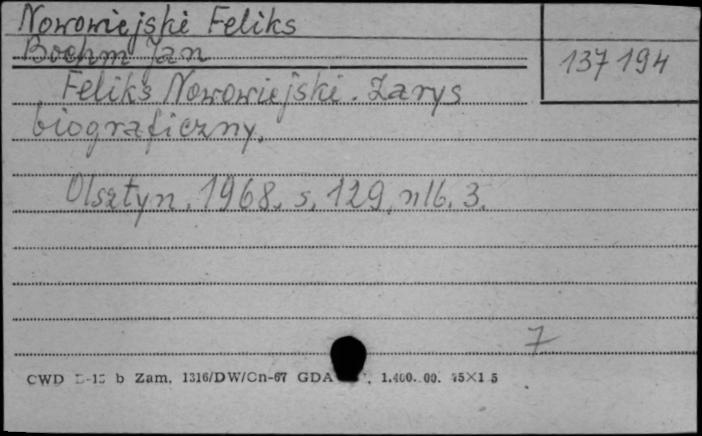 Nowowiejski Feliks
Boehm Jan
137 194
Feliks Nowowiejski. Zarys
biograficzny.
Olsztyn, 1968, s. 129, nlb. 3.
7
CWD b Zam. 1316/DW/Cn-67 GDA